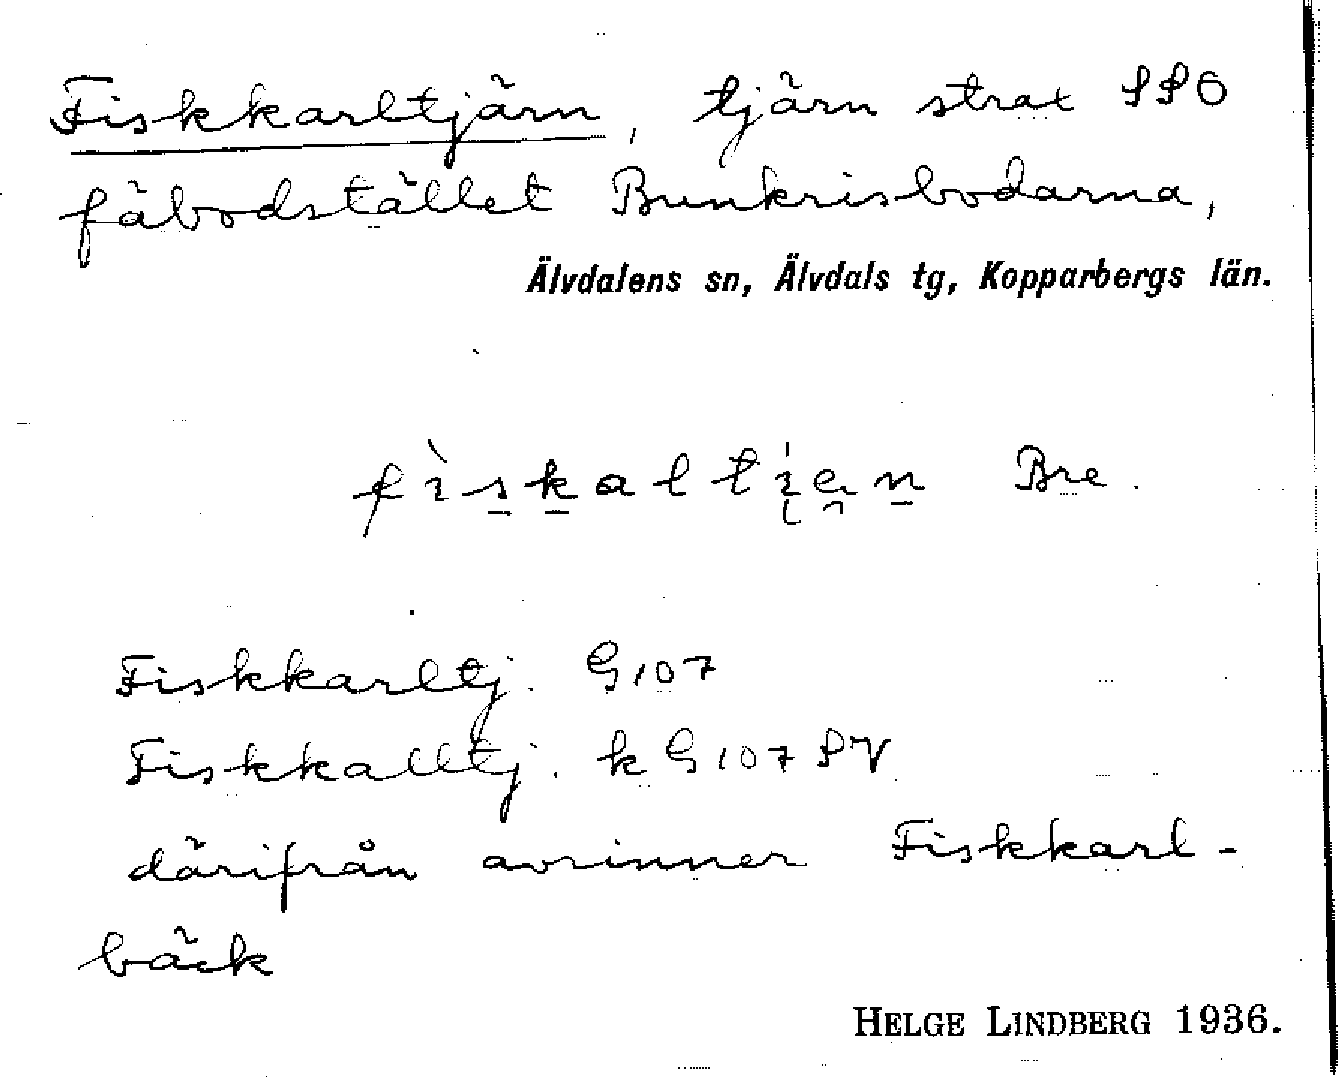 Fiskkarltjärn, tjärn strax SSO
fäbodstället Bunkrisbodarna,
Älvdalens sn, Älvdals tg, Kopparbergs län.
Bre.
Fiskkarltj. G107
Fiskkalltj. k G107 SV
därifrån avrinner Fiskkarl-
bäck
HELGE LINDBERG 1936.